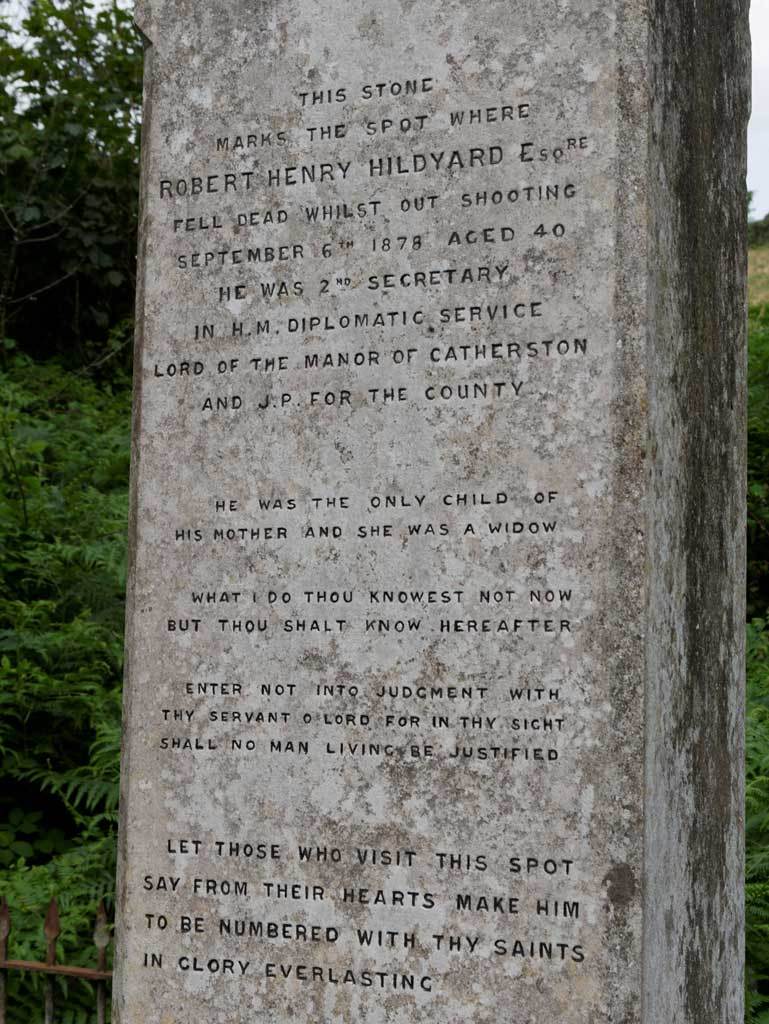 THIS STONE
MARKS THE SPOT WHERE
ROBERT HENRY HILDYARD EsqRE
FELL DEAD WHILST OUT SHOOTING
SEPTEMBER 6TH 1878 AGED 40
HE WAS 2ND SECRETARY
IN H.M. DIPLOMATIC SERVICE
LORD OF THE MANOR OF CATHERSTON
AND J.P. FOR THE COUNTY
HE WAS THE ONLY CHILD OF
HIS MOTHER AND SHE WAS A WIDOW
WHAT I DO THOU KNOWEST NOT NOW
BUT THOU SHALT KNOW HEREAFTER
ENTER NOT INTO JUDGMENT WITH
THY SERVANT O LORD FOR IN THY SIGHT
SHALL NO MAN LIVING BE JUSTIFIED
LET THOSE WHO VISIT THIS SPOT
SAY FROM THEIR HEARTS MAKE HIM
TO BE NUMBERED WITH THY SAINTS
IN GLORY EVERLASTING